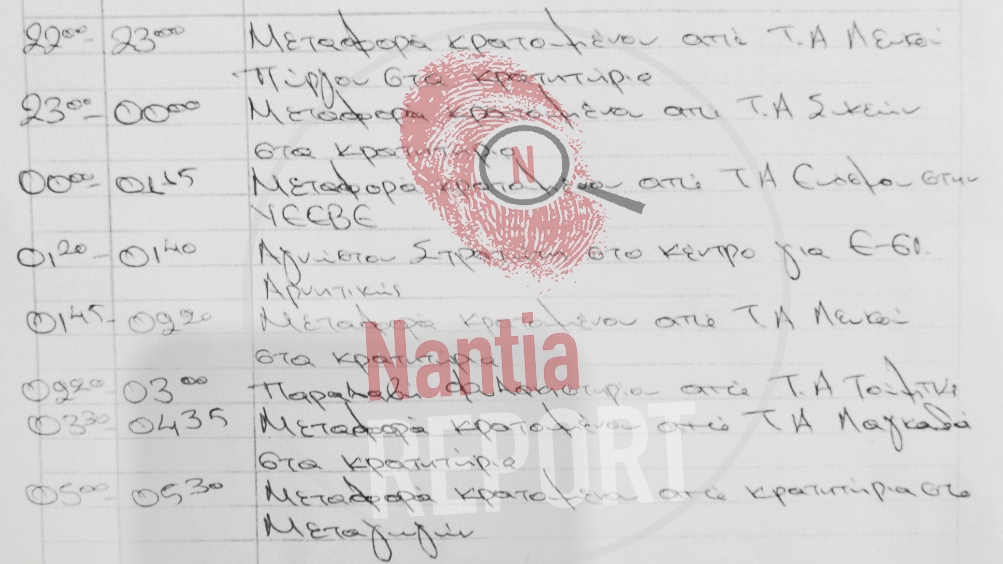 22⁰⁰- 23⁰⁰ Μεταφορά κρατουμένου από Τ.Α Λευκού
Πύργου στα κρατητήρια
23⁰⁰- 00⁰⁰ Μεταφορά κρατουμένου από Τ.Α Συκεών
στα κρατητήρια
N
00⁰⁰- 01.15 Μεταφορά κρατουμένου από Τ Α στην
ΥΕΕΒΕ
01²⁰- 01⁴⁰ Αγνώστου Στρατιώτη στο κέντρο για Ε-60.
Αρνητικώς
01⁴⁵- 02²⁰ Μεταφορά κρατουμένου από Τ.Α Λευκού
Nantia
στα κρατητήρια
02²⁰- 03⁰⁰ Παραλαβή από Τ.Α Τούμπας
REPORT
03³⁰ 04³⁵ Μεταφορά κρατουμένου από Τ Α Λαγκαδά
στα κρατητήρια
05⁰⁰- 05³⁰ Μεταφορά κρατουμένου από κρατητήρια στο
Μεταγωγών